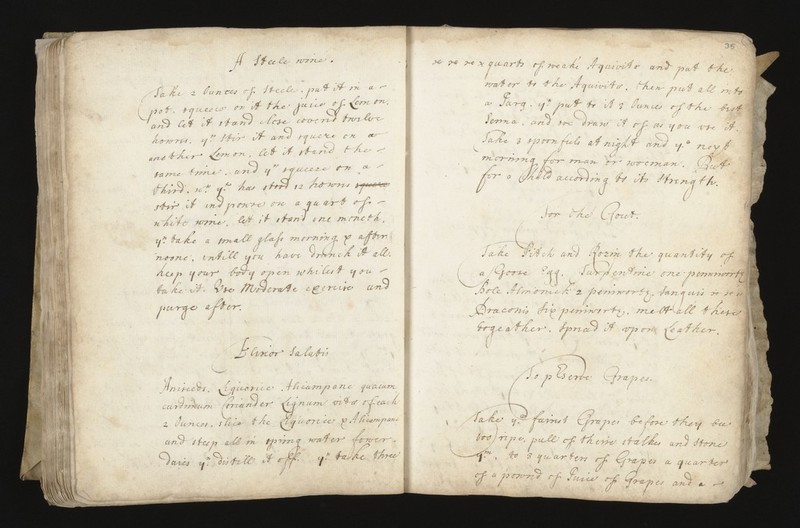 A Steele wine.
Take 2 Ounces of Steele. put it in a
pot. squeeze on it the juice of Lemon,
and let it stand close covered twelve
howrs. yn stir it and squeze on a
another Lemon. let it stand the
same time. and yn squeeze on a
third. wn yn has stood 12 howrs squeze
stir it and powre on a quart of
white wine, let it stand one moneth.
yn take a small glass morning & after
noone. untill you have drunck it all.
keep your body open whilest you
take it. Use Moderate exercise and
purge after.
Elixior Salutis
Aniseeds, Liquorice Alicampane
cardimum Coriander Lignum vitæ of each
2 Ounces. slice the Liquorice & Alicampane
and steep all in spring water fower
daies yn distill it off. yn take three
35
quarts of weake Aquivitæ and put the
water to the Aquivitæ. then put all into
a Jarg. yn put to it 8 Ounces of the best
Senna. and we draw it of as you use it.
Take 3 spoonfuls at night and yn next
morning for man or woeman. But
for a Child according to its strength.
For the Gout.
Take Pitch and Rozin the quantity of
a Goose Egg. Turpentine one penniworth
Bole Almonick 2 peniworth, sanguis
Draconis six peniworth, melt all these
togeather. spread it upon Leather.
To pEserve Grapes.
Take ye fairest Grapes before they bee
too ripe. pull of theire stalkes and stone
ym. to 3 quarters of Grapes a quarter
of a pownd of Juice of Grapes and a